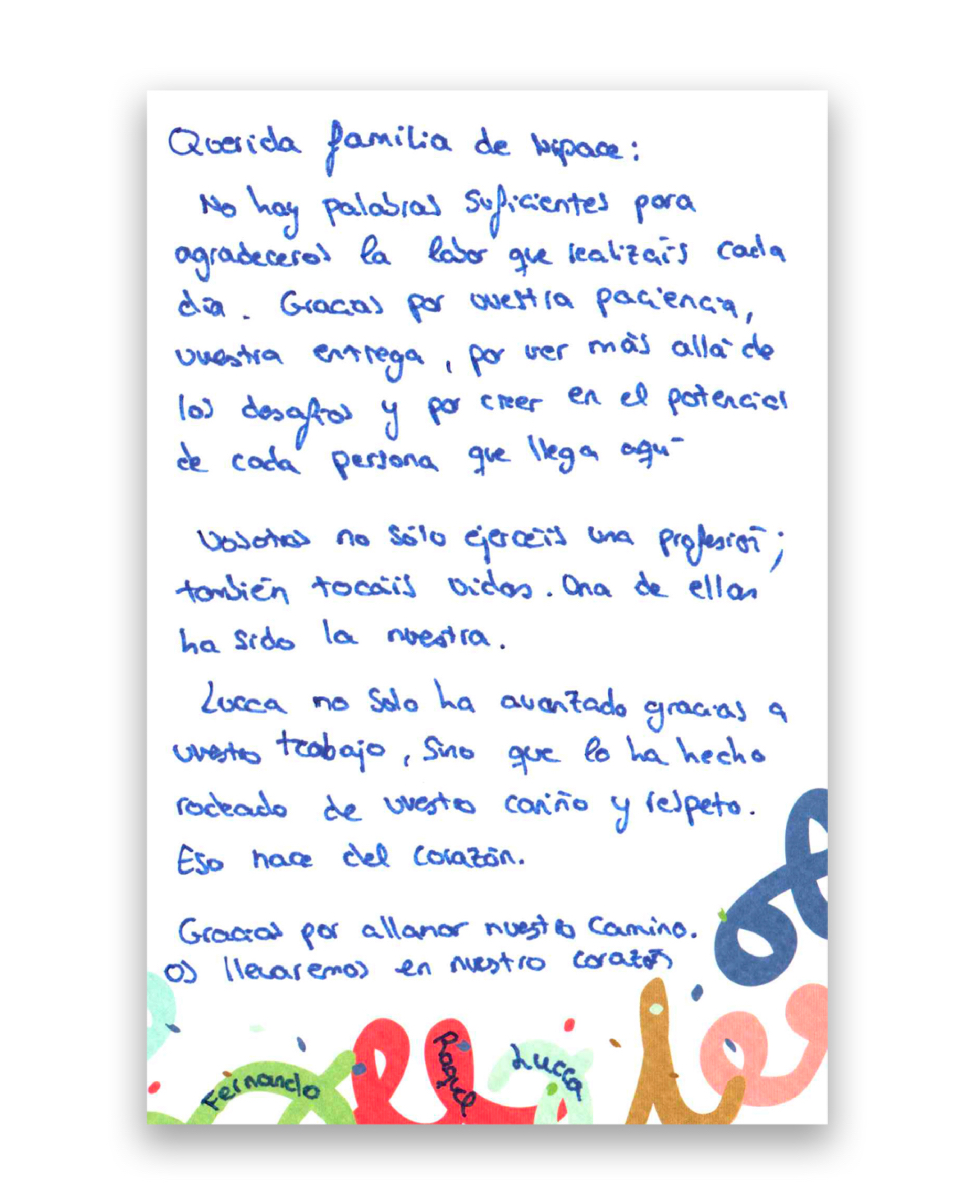 Querida familia de Nipace:
No hay palabras suficientes para
agradeceros la labor que realizáis cada
día. Gracias por vuestra paciencia,
vuestra entrega, por ver más allá de
los desafíos y por creer en el potencial
de cada persona que llega aquí
Vosotros no sólo ejercéis una profesión;
también tocáis vidas. Una de ellas
ha sido la nuestra.
Lucca no solo ha avanzado gracias a
vuestro trabajo, sino que lo ha hecho
rodeado de vuestro cariño y respeto.
Eso nace del corazón.
Gracias por allanar nuestro camino.
os llevaremos en nuestro corazón
Fernando
Raquel
Lucca